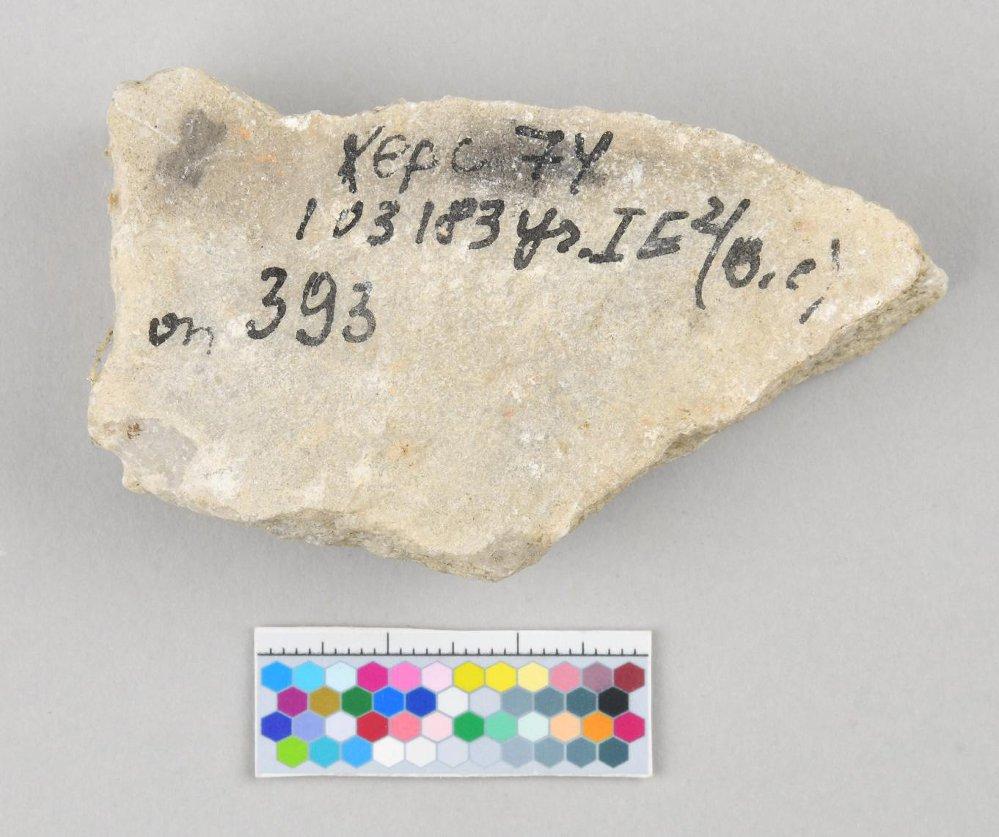 Херс 74
103183 уз. IE²/ в.с)
оп 393